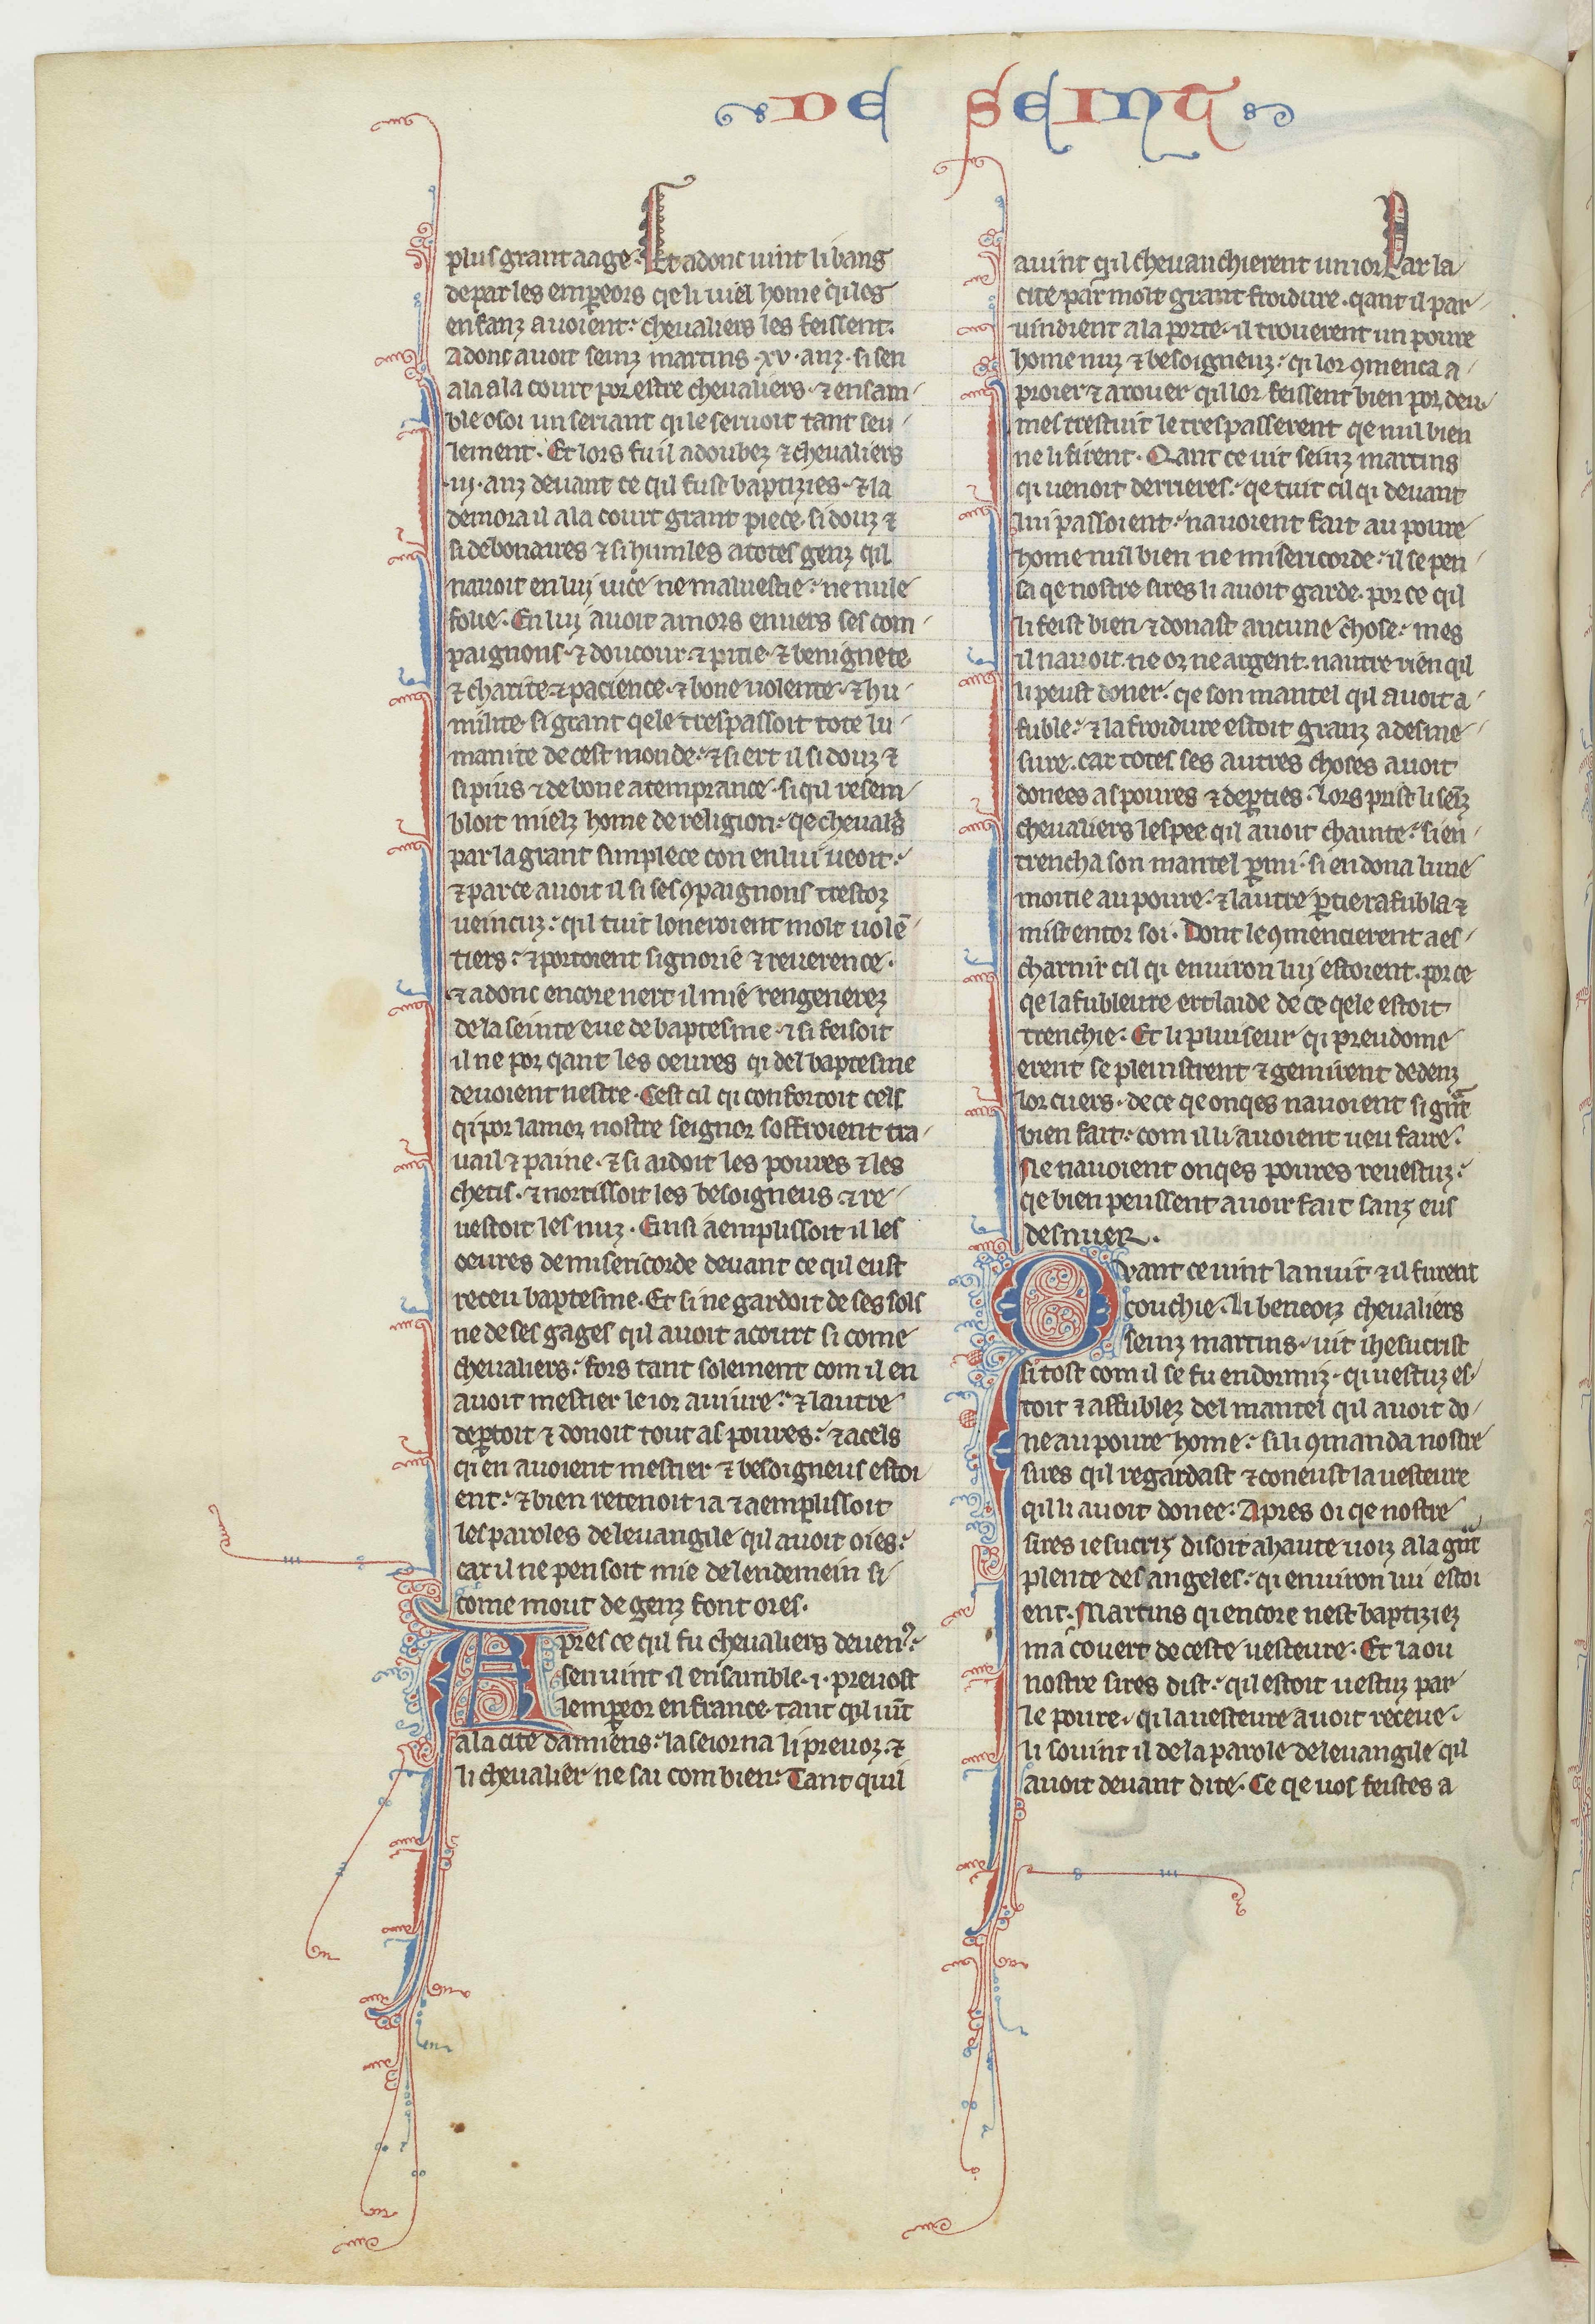 DE SEINT
plus grant aage. Et adonc uint li bans
de par les empeors qe li uiel home qi les
enfanz auoient. cheualiers les feissent.
Adonc auoit seinz martins .xv. anz. si sen
ala a la court por estre cheualiers. ⁊ ensam
ble o soi un seriant qi le seruoit tant seu
lement. Et lors fu il adoubez ⁊ cheualiers
.iij. anz deuant ce qil fust baptizies. ⁊ la
demora il a la court grant piece. si douz ⁊
si debonaires ⁊ si humles a totes genz qil
nauoit en luj uice ne maluestie. ne nule
folie. En luj auoit amors enuers ses com
paignons. ⁊ doucour. ⁊ pitie. ⁊ benignete
⁊ charite. ⁊ pacience. ⁊ bone uolente. ⁊ hu
milite. si grant qele trespassoit tote lu
manite de cest monde. ⁊ si ert il si douz ⁊
si pius ⁊ de bone atemprance. si qil resem
bloit mielz home de religion. qe cheualrs
par la grant simplece con en lui ueoit.
⁊ par ce auoit il si ses ꝯpaignons trestoz
ueincuz. qil tuit loneroient molt uolē
tiers. ⁊ portoient signorie ⁊ reuerence.
⁊ adonc encore nert il mie rengenerez
de la seinte eue de baptesme. ⁊ si feisoit
il ne por qant les oeures qi del baptesme
deuoient nestre. Cest cil qi confortoit cels
qi por lamor nostre seignor soffroient tra
uail ⁊ paine. ⁊ si aidoit les poures ⁊ les
chetis. ⁊ norrissoit les besoigneus ⁊ re
uestoit les nuz. Ensi aemplissoit il les
oeures de misericorde deuant ce qil eust
receu baptesme. Et si ne gardoit de ses sols
ne de ses gages qil auoit a court si come
cheualiers. fors tant solement com il en
auoit mestier le ior a uiure. ⁊ lautre
deꝑtoit ⁊ donoit tout as poures. ⁊ a cels
qi en auoient mestier ⁊ besoigneus estoi
ent. ⁊ bien retenoit ia ⁊ aemplissoit
les paroles de leuangile qil auoit oies.
car il ne pensoit mie de lendemein si
come mout de genz font ores.
Apres ce qil fu cheualiers deuenꝰ.
sen uint il ensamble .i. preuost
lemꝑeor en france. tant qil uīt
a la cite damiens. la seiorna li preuoz. ⁊
li cheualier ne sai com bien. Tant quil
auint qil cheuauchierent un ior par la
cite par molt grant froidure. qant il par
uindrent a la porte. il trouerent un poure
home nuz ⁊ besoigneuz. qi lor ꝯmenca a
proier ⁊ a rouer qil lor feissent bien por deu.
mes trestuit le trespasserent qe nul bien
ne li firent. Qant ce uit seinz martins
qi uenoit derrieres. qe tuit cil qi deuant
lui passoient. nauoient fait au poure
home nul bien ne misericorde. il se pen
sa qe nostre sires li auoit garde. por ce qil
li feist bien ⁊ donast aucune chose. mes
il nauoit. ne or ne argent. nautre rien qil
li peust doner. qe son mantel qil auoit a
fuble. ⁊ la froidure estoit granz a desme
sure. car totes ses autres choses auoit
donees as poures ⁊ deꝑties. Lors prist li seīz
cheualiers lespee qil auoit chainte. si en
trencha son mantel ꝑmi. si en dona lune
moitie au poure. ⁊ lautre ꝑtie rafubla ⁊
mist entor soi. Dont le ꝯmencierent a es
charnir cil qi enuiron luj estoient. por ce
qe lafubleure ert laide de ce qele estoit
trenchie. Et li pluiseur qi preudome
erent se pleinstrent ⁊ gemirent dedenz
lor cuers. de ce qe onqes nauoient si gͣnt
bien fait. com il li auoient ueu faire.
Ne nauoient onqes poures reuestuz.
qe bien peussent auoir fait sanz eus
desnuer.
Qvant ce uint la nuit ⁊ il furent
couchie. li beneoiz cheualiers
seinz martins. uit ihesucrist
si tost com il se fu endormiz. qi uestuz es
toit ⁊ affublez del mantel qil auoit do
ne au poure home. si li ꝯmanda nostre
sires qil regardast ⁊ coneust la uesteure
qil li auoit donee. Apres oi qe nostre
sires iesucriz disoit a haute uoiz a la gͣnt
plente des angeles. qi enuiron lui estoi
ent. Martins qi encore nest baptiziez
ma couert de ceste uesteure. Et la ou
nostre sires dist. qil estoit uestuz par
le poure. qi la uesteure auoit receue.
li souint il de la parole de leuangile qil
auoit deuant dite. Ce qe uos feistes a